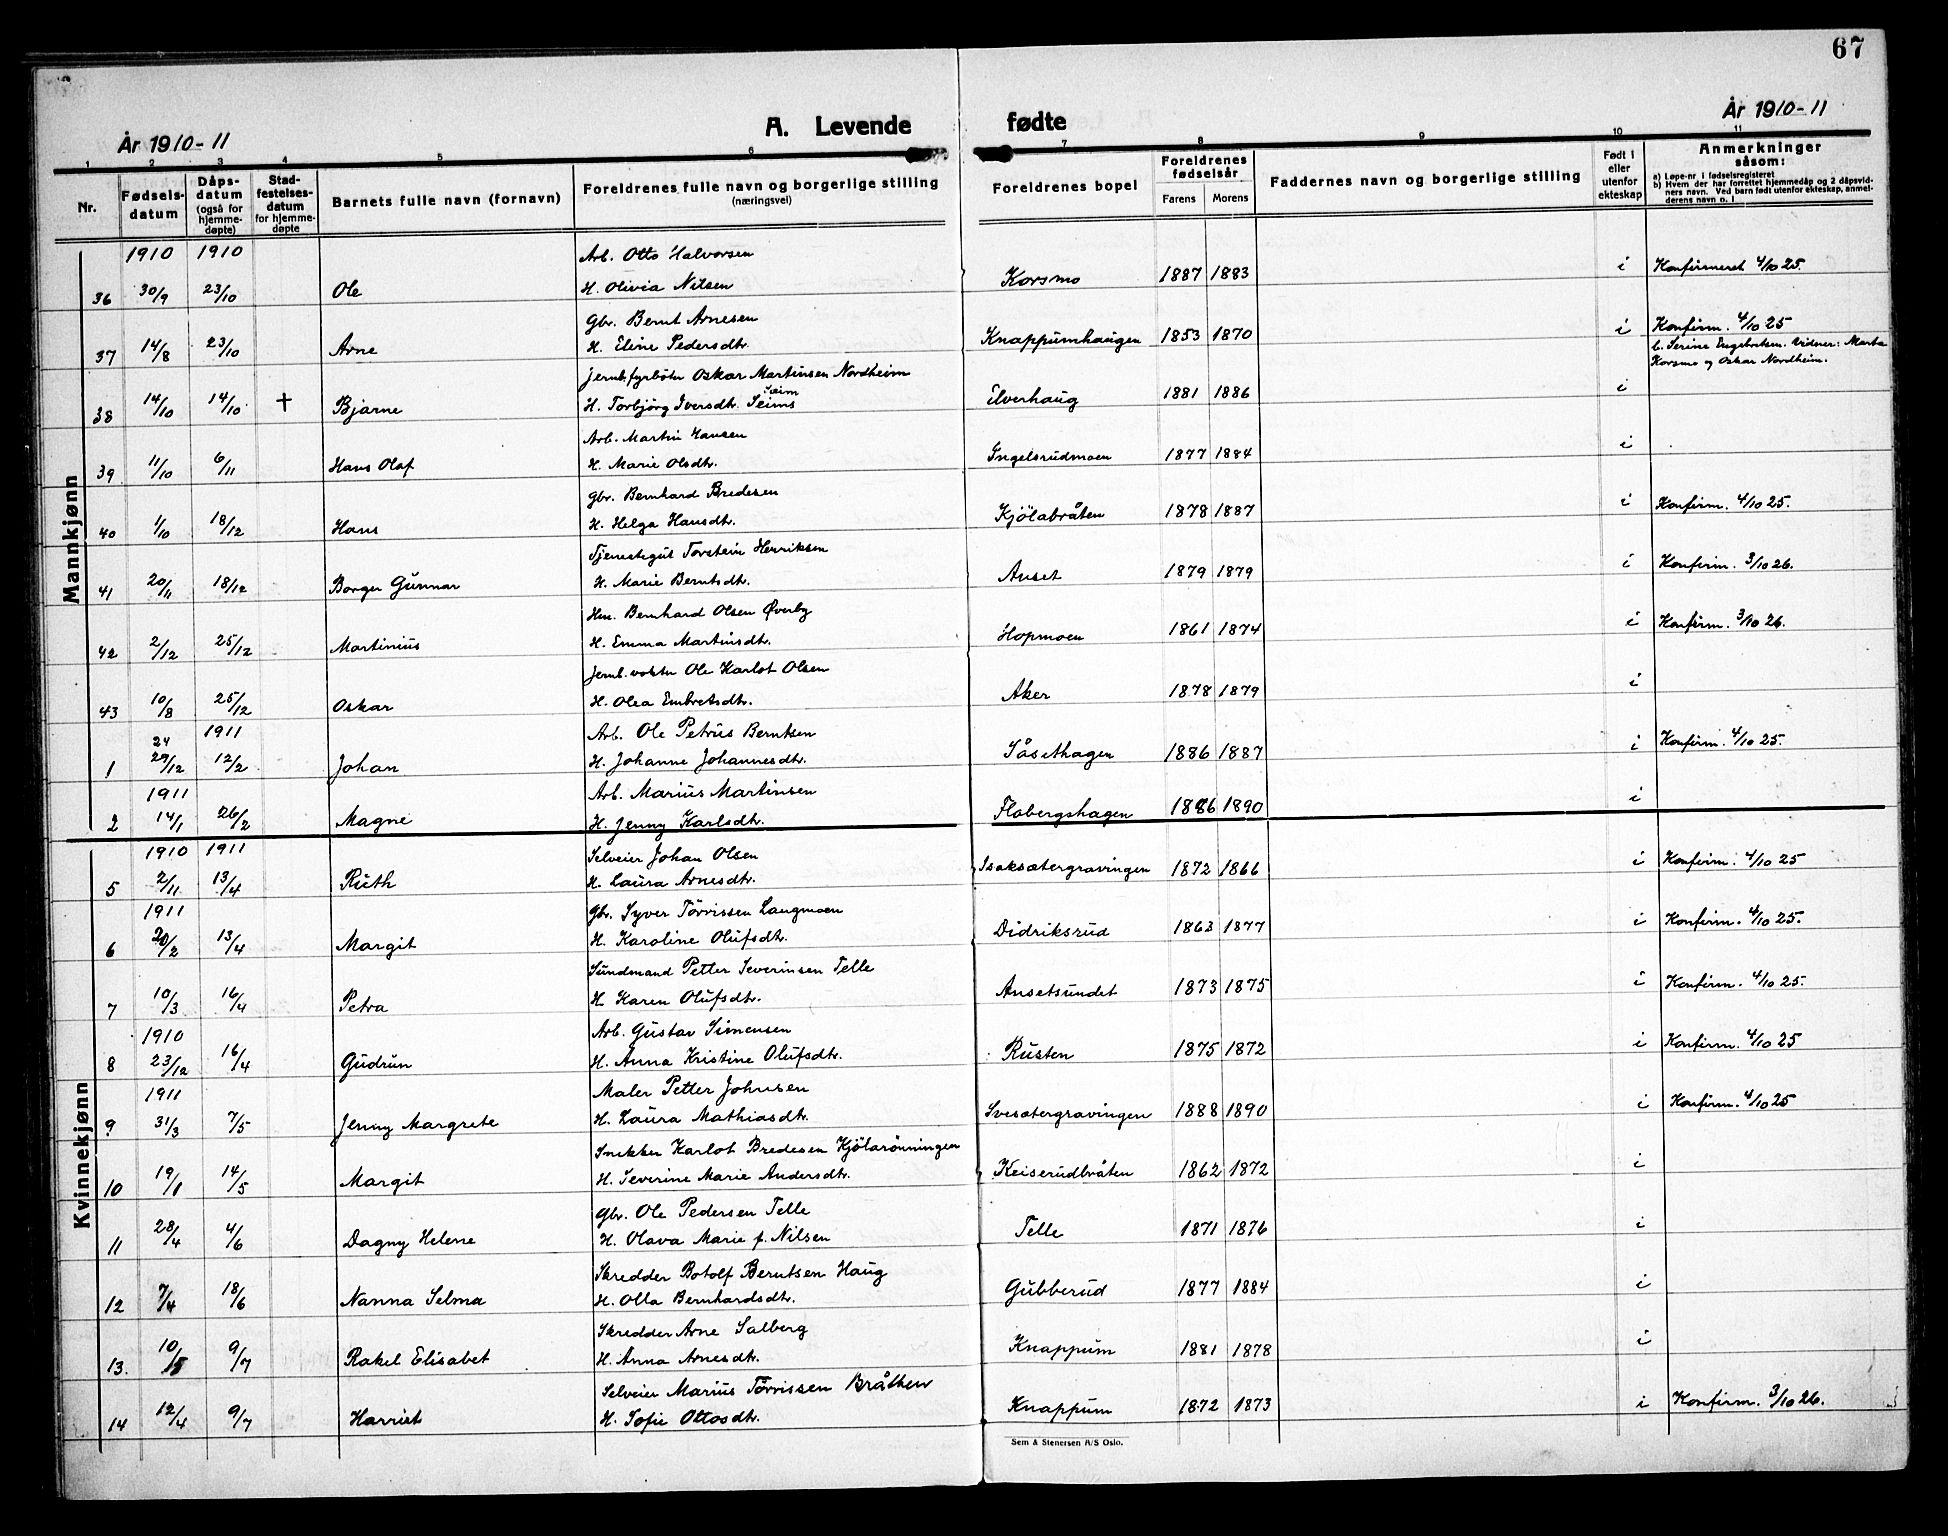 67
År 1910-11
A. Levende fødte
År 1910-11
1 2 3 4 5 6 7 8 9 10 11
Nr.
Fødsels-
datum
Dåps-
datum
(også for
hjemme-
døpte)
Stad-
festelses-
datum
for hjemme-
døpte
Barnets fulle navn (fornavn)
Foreldrenes fulle navn og borgerlige stilling
(næringsvei)
Foreldrenes bopel
Foreldrenes
fødselsår
Farens Morens
Faddernes navn og borgerlige stilling
Født i
eller
utenfor
ekteskap
Anmerkninger
såsom:
a) Løpe-nr i fødselsregisteret
b) Hvem der har forrettet hjemmedåp og 2 dåpsvid-
ners navn. Ved barn født utenfor ekteskap, anmel-
derens navn o. l
Mannkjønn
1910 1910 Arb. Otto Halvorsen
36 30/9 23/10 Ole H. Olivia Nilsen Korsmo 1887 1883 i Konfirmeret 4/10 25.
Gbr. Bernt Arnesen
37 14/8 23/10 Arne H. Eline Pedersdtr. Knappumhaugen 1853 1870 i Konfirm. 4/10 25
b. Serine Engebretsen. Vidner: Marta
Korsmo og Oskar Nordheim.
Jernb.fyrbøter Oskar Martinsen Nordheim
Seim
38 14/10 14/10 † Bjarne H. Torbjörg Iversdtr. Seims Elverhaug 1881 1886 i
Arb. Martin Hansen
39 11/10 6/11 Hans Olaf H. Marie Olsdtr. Ingelsrudmoen 1877 1884 i
Gbr. Bernhard Bredesen
40 1/10 18/12 Hans H. Helga Hansdtr. Kjölabråten 1878 1887 i Konfirm. 4/10 25.
Tjenestegut Torstein Henriksen
41 20/11 18/12 Borger Gunnar H. Marie Berntsdtr. Anset 1879 1879 i Konfirm. 3/10 26.
Hm. Bernhard Olsen Øverby
42 2/12 25/12 Martinius H. Emma Martinsdtr. Hopmoen 1861 1874 i Konfirm. 3/10 26.
Jernb.vokter Ole Karlot Olsen
43 10/8 25/12 Oskar H. Olea Embretsdtr. Aker 1878 1879 i
24 1911 Arb. Ole Petrus Berntsen
1 29/12 12/2 Johan H. Johanne Johannesdtr. Såsethagen 1886 1887 i Konfirm. 4/10 25.
1911 Arb. Marius Martinsen
2 14/1 26/2 Magne H. Jenny Karlsdtr. Flobergshagen 1886 1890 i
Kvinnekjønn
1910 1911 Selveier Johan Olsen
5 2/11 13/4 Ruth H. Laura Arnesdtr. Isaksætergravingen 1872 1866 i Konfirm. 4/10 25
1911 Gbr. Syver Törrissen Langmoen
6 20/2 13/4 Margit H. Karoline Olufsdtr. Didriksrud 1863 1877 i Konfirm. 4/10 25.
Sundmand Petter Severinsen Telle
7 10/3 16/4 Petra H. Karen Olufsdtr. Ansetsundet 1873 1875 i Konfirm. 4/10 25.
1910 Arb. Gustav Simensen
8 23/12 16/4 Gudrun H. Anna Kristine Olufsdtr. Rusten 1875 1872 i Konfirm. 4/10 25
1911 Maler Petter Johnsen
9 31/3 7/5 Jenny Margrete H. Laura Mathiasdtr. Svesætergravingen 1888 1890 i Konfirm. 4/10 25
Snekker Karlot Bredesen Kjölarönningen
10 19/1 14/5 Margit H. Severine Marie Andersdtr. Keiserudbråten 1862 1872 i
Gbr. Ole Pedersen Telle
11 28/4 4/6 Dagny Helene H. Olava Marie f. Nilsen Telle 1871 1876 i
Skredder Botolf Berntsen Haug
12 7/4 18/6 Nanna Selma H. Olla Bernhardsdtr. Gubberud 1877 1884 i
Skredder Arne Salberg
13. 10/5 9/7 Rakel Elisabet H. Anna Arnesdtr. Knappum 1881 1878 i
Selveier Marius Törrissen Bråthen
14 12/4 9/7 Harriet H. Sofie Ottosdtr. Knappum 1872 1873 i Konfirm. 3/10 26.
Sem & Stenersen A/S Oslo.